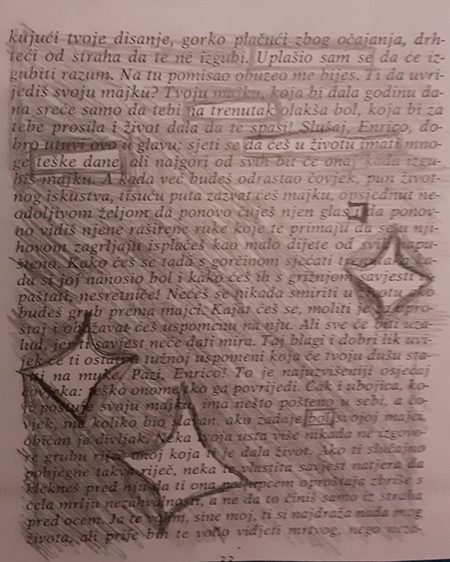 kujući tvoje disanje, gorko plačući zbog očajanja, drh-
teći od straha da te ne izgubi. Uplašio sam se da će iz-
gubiti razum. Na tu pomisao obuzeo me bijes. Ti da uvri-
jediš svoju majku? Tvoju majku, koja bi dala godinu da-
na sreće samo da tebi na trenutak olakša bol, koja bi za
tebe prosila i život dala da te spasi! Slušaj, Enrico, do-
bro utuvi ovo u glavu: sjeti se da ćeš u životu imati mno-
ge teške dane, ali najgori od svih bit će onaj kada izgu-
biš majku. A kada već budeš odrastao čovjek, pun život-
nog iskustva, tisuću puta zazvat ćeš majku, opsjednut ne-
odoljivom željom da ponovo čuješ njen glas, da ponov-
no vidiš njene raširene ruke koje te primaju da se u nji-
hovom zagrljaju isplačeš kao malo dijete od svih
Kako ćeš se tada s gorčinom sjećati ka-
da si joj nanosio bol i kako ćeš ih s grižnjom savjesti
paštati, nesretniče! Nećeš se nikada smiriti u
budeš grub prema majci. Kajat ćeš se, moliti je
štaj i obožavat ćeš uspomenu na nju. Ali sve će biti uza-
lud, jer ti savjest neće dati mira. Taj blagi i dobri lik uvi-
jek će ti ostati u tužnoj uspomeni koja će tvoju dušu sta-
viti na muke. Pazi, Enrico! To je najuzvišeniji osjećaj
čovjeka: teško onome tko ga povrijedi. Čak i ubojica, ko-
je poštuje svoju majku, ima nešto pošteno u sebi, a čo-
vjek, ma koliko bio slavan, ako zadaje bol svojoj majci,
običan je divljak. Neka tvoja usta više nikada ne izgovo-
re grubu riječ onoj koja ti je dala život. Ako ti slučajno
pobjegne takva riječ, neka te vlastita savjest natjera da
klekneš pred nju, da ti ona poljupcem oproštaja zbriše s
čela mrlju nezahvalnosti, a ne da to činiš samo iz straha
pred ocem. Ja te volim, sine moj, ti si najdraža nada mog
života, ali prije bih te volio vidjeti mrtvog, nego neza-
22